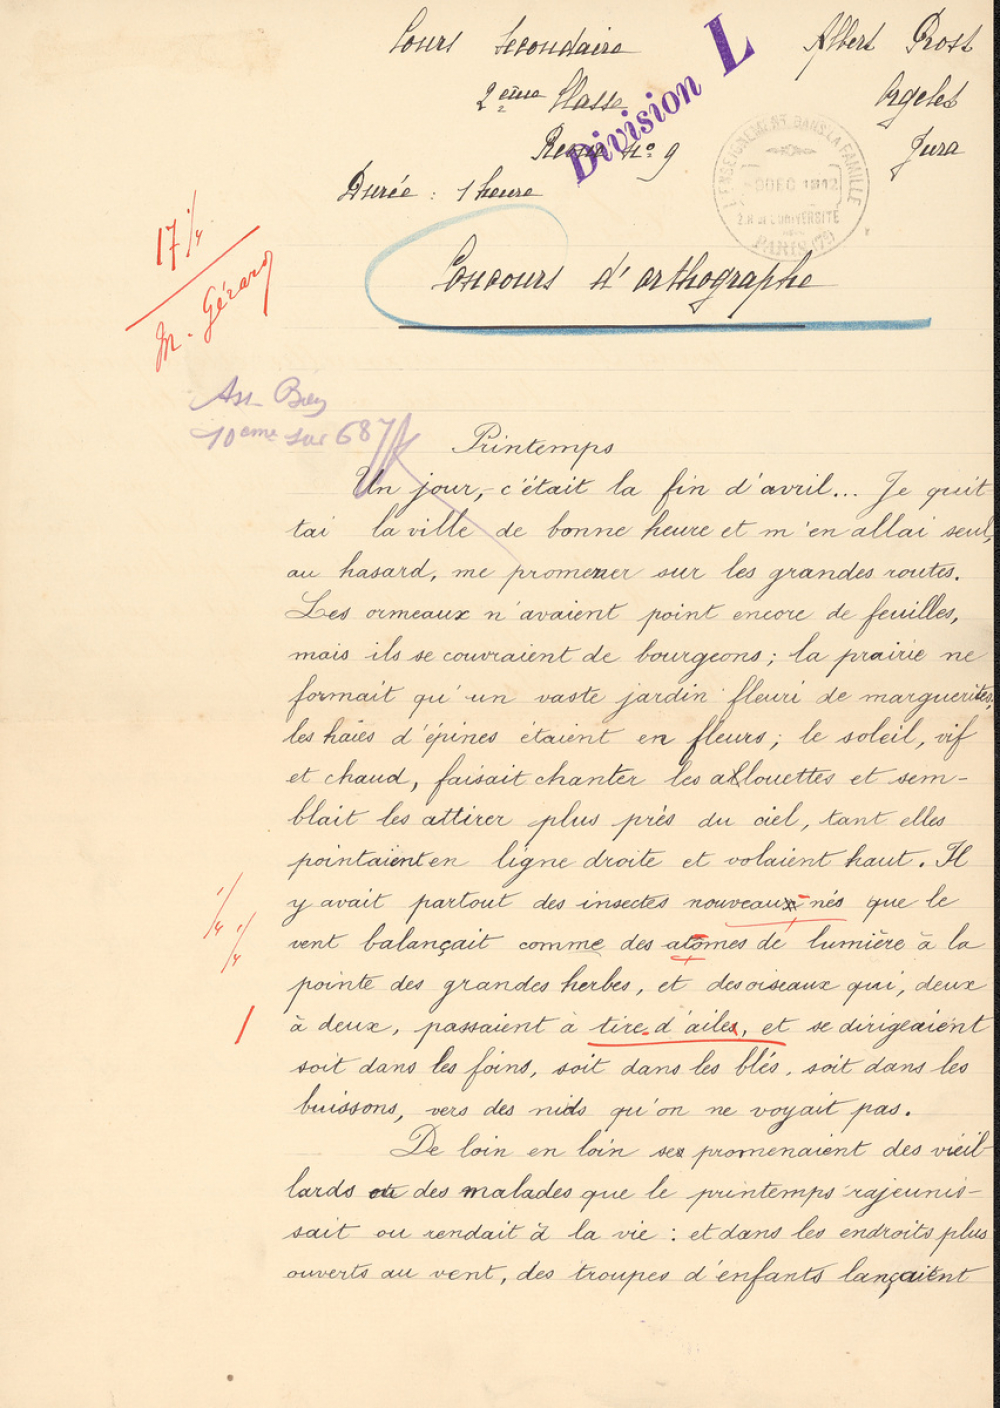 Cours Secondaire
Albert Prost
2ème Classe
Orgelet
Division L
Revue No 9
Jura
L'ENSEIGNEMENT DANS LA FAMILLE
DEC 1912
2 R DE L'UNIVERSITÉ
PARIS (7e)
Durée : 1 heure
17 1/4
M. Gérard
Concours d'orthographe
Ass. Bien
10ème sur 687
Printemps
Un jour, c'était la fin d'avril... Je quit
tai la ville de bonne heure et m'en allai seul,
au hasard, me promener sur les grandes routes.
Les ormeaux n'avaient point encore de feuilles,
mais ils se couvraient de bourgeons ; la prairie ne
formait qu'un vaste jardin fleuri de marguerites,
les haies d'épines étaient en fleurs ; le soleil, vif
et chaud, faisait chanter les allouettes et sem-
blait les attirer plus près du ciel, tant elles
pointaient en ligne droite et volaient haut. Il
y avait partout des insectes nouveaux-nés que le
1/4
vent balançait comme des atomes de lumière à la
1/4
pointe des grandes herbes, et des oiseaux qui, deux
à deux, passaient à tire-d'ailes, et se dirigeaient
1
soit dans les foins, soit dans les blés, soit dans les
buissons, vers des nids qu'on ne voyait pas.
De loin en loin se promenaient des vieil
lards ou des malades que le printemps rajeunis-
sait ou rendait à la vie : et dans les endroits plus
ouverts au vent, des troupes d'enfants lançaient